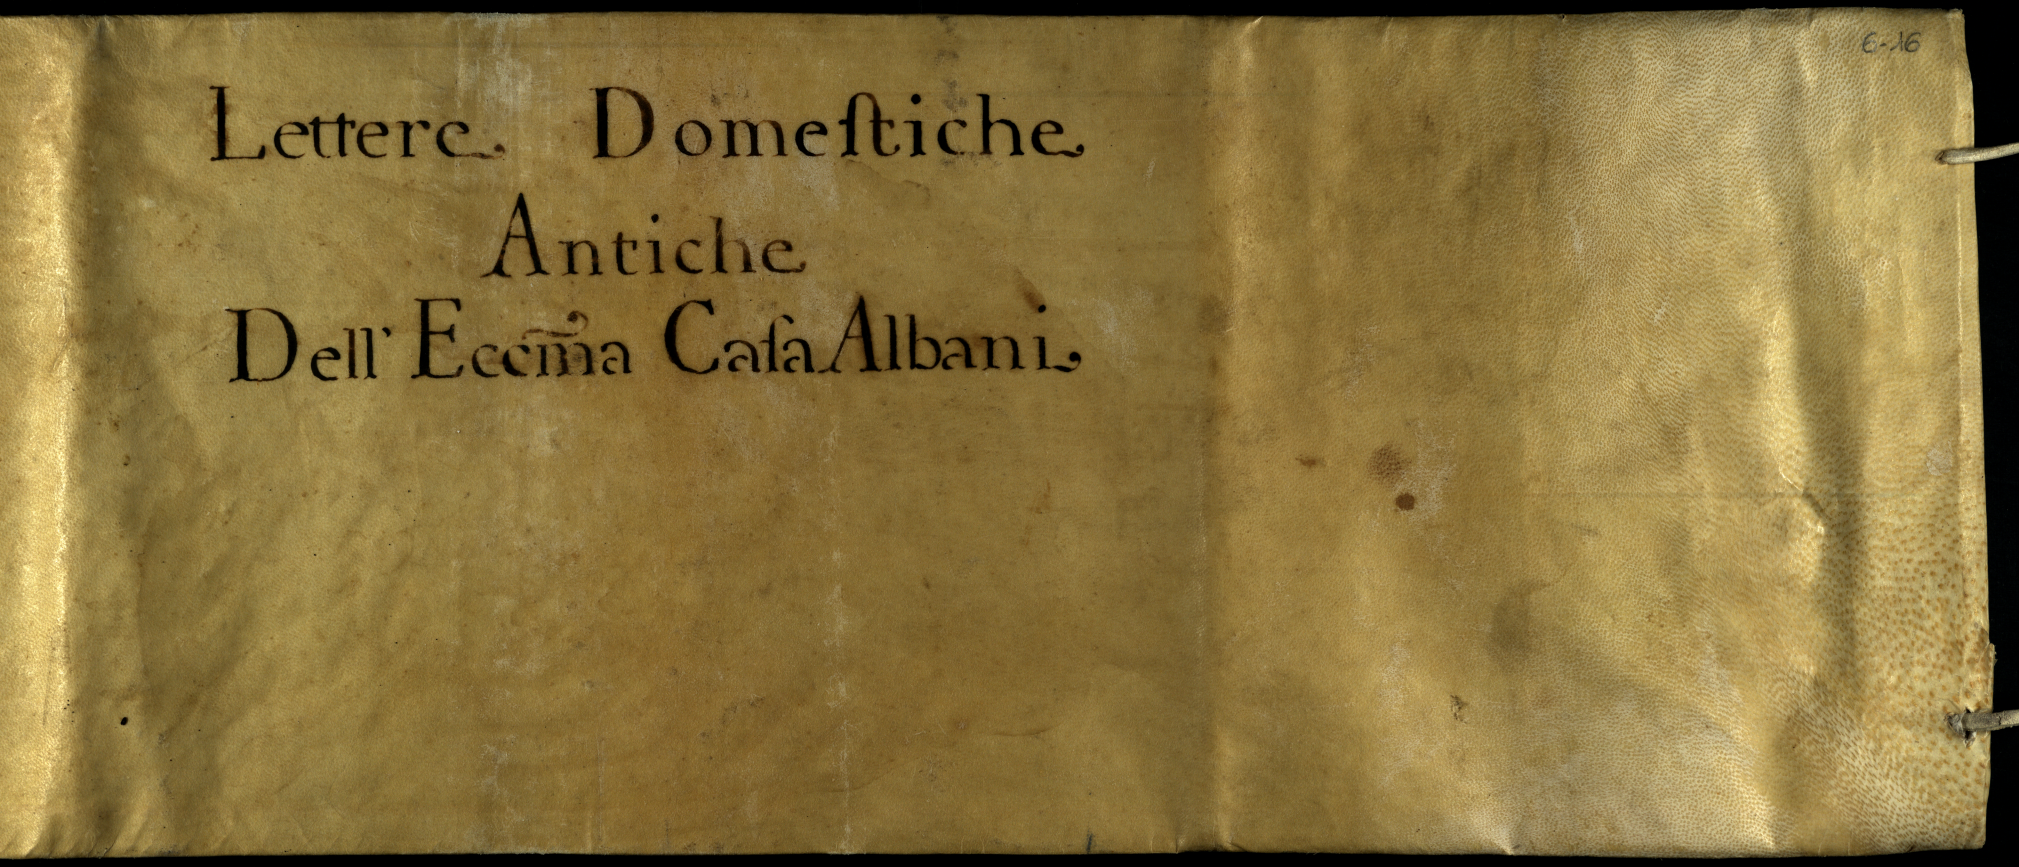 6-16
Lettere Domeſtiche
Antiche
Dell' Eccm̃a Caſa Albani